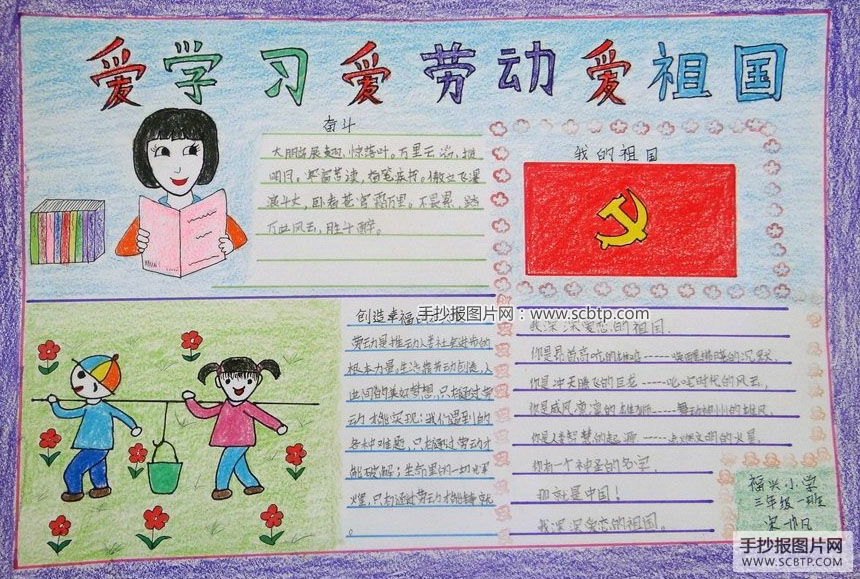 爱学习爱劳动爱祖国
奋斗
大朋展翅,惊落叶。万里云
明月,
斗志,
万里风云,胜十醉。
我的祖国
手抄报图片网:www.scbtp.com
创造幸福
劳动是推动人类社会进步的
根本力量,生活靠劳动创造,人
世间的美好梦想,只有通过劳
动才能实现;我们遇到的
各种难题,只有通过劳动才
能破解;生命里的一切
辉煌,只有通过劳动才能铸就
。
我深深爱恋的祖国.
你是昂首高吭的雄鸡-----唤醒拂晓的沉默,
你是冲天腾飞的巨龙-----叱咤时代的风云,
你是威风凛凛的雄狮-----舞动神州的雄风,
你是人类智慧的起源-----点燃文明的火星.
你有一个神圣的名字,
那就是中国!
我深深爱恋的祖国。
福兴小学
三年级一班
手抄报图片网
WWW.SCBTP.COM